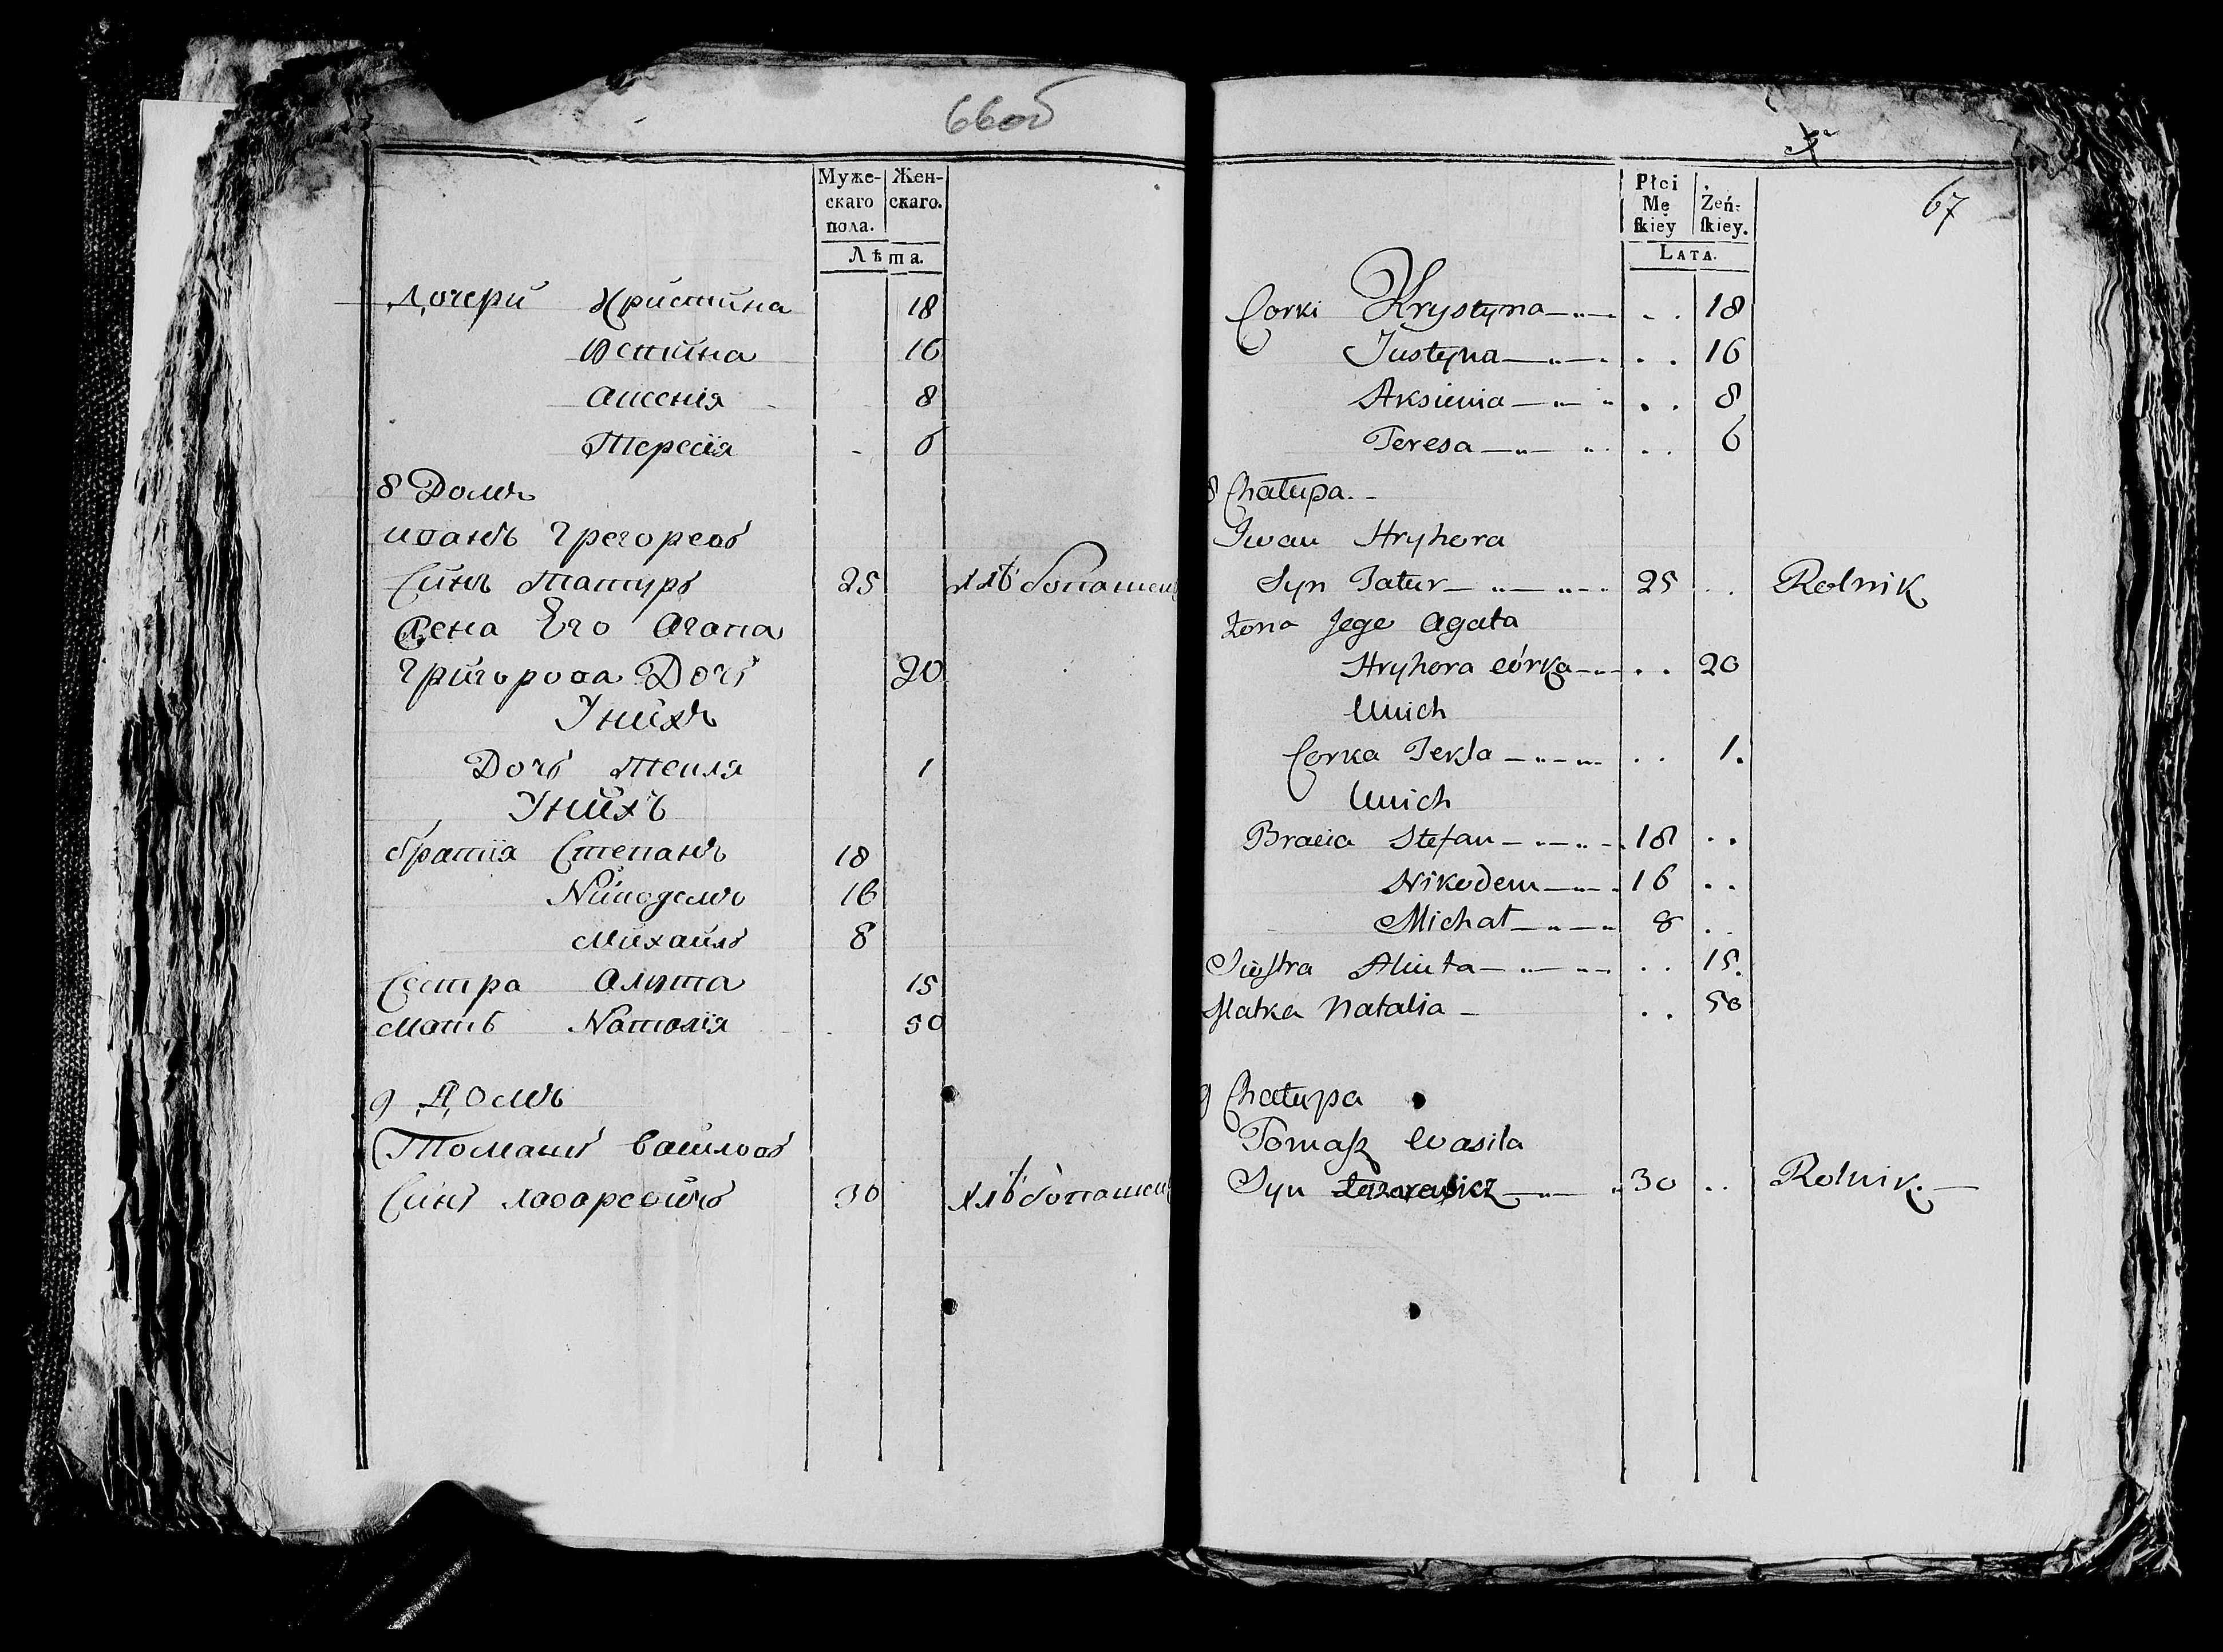 66об
Муже-
скаго
пола.
Жен-
скаго.
Лѣта.
Дочери Христина 18
Юстина 16
Аксенія 8
Тересія 6
8 Домъ
иванъ Грегоревъ
Синъ Татуръ 25 хлѣбопашец
Жена Его Агата
Григорова Дочь 20
У нихъ
Дочь Текля 1
У нихъ
братія Степанъ 18
Никодемъ 16
Михаилъ 8
Сестра Алюта 15
мать Наталія 50
9 Домъ
Томашъ василовъ
Синъ лазаревичъ 30 хлѣбопашец
67
Płci
Mę
skiey
Żeń-
skiey.
LATA.
Corki Krystyna 18
Justyna 16
Aksienia 8
Teresa 6
8 Chałupa.
Iwan Hryhora
Syn Tatur 25 Rolnik
Żona Jego Agata
Hryhora córka 20
U nich
Corka Tekla 1.
U nich
Bracia Stefan 18
Nikodem 16
Michał 8
Siostra Aluta 15.
Matka Natalia 50
9 Chałupa
Tomasz Wasila
Syn Łazarewicz 30 Rolnik.